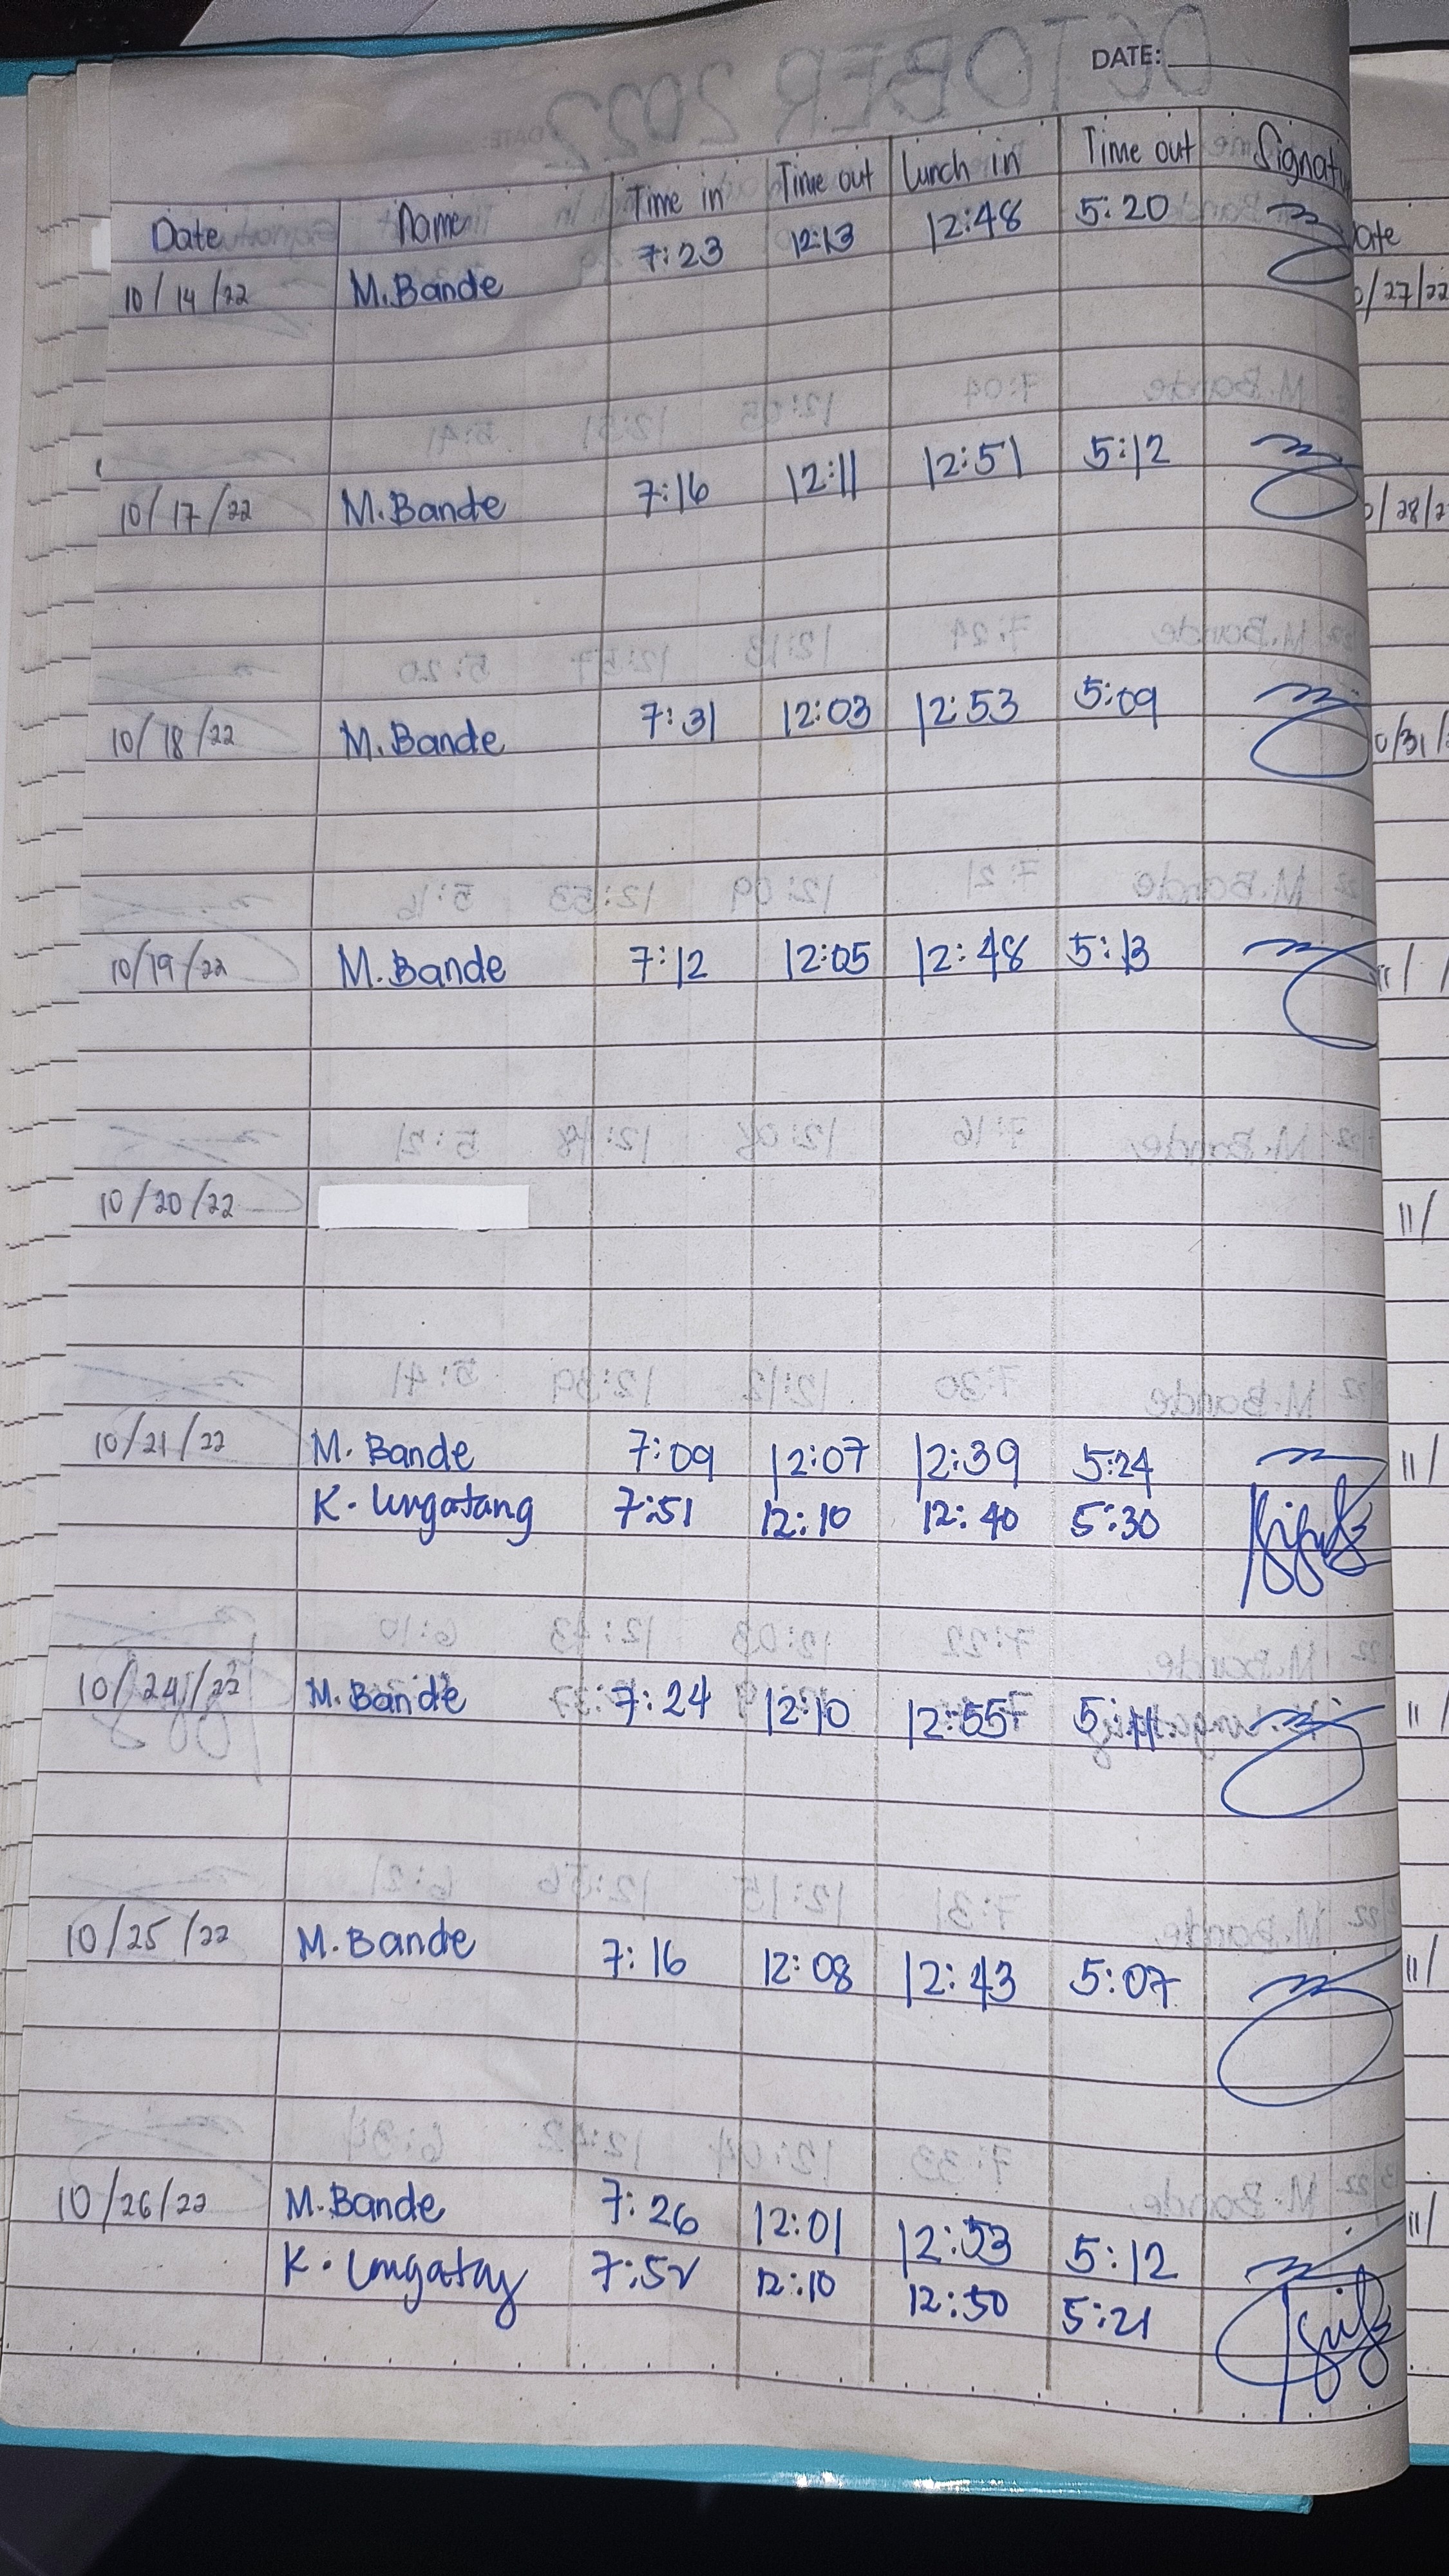 DATE:
Date Name Time in Time out Lunch in Time out Signatu
10/14/22 M.Bande 7:23 12:13 12:48 5:20
10/17/22 M.Bande 7:16 12:11 12:51 5:12
10/18/22 M.Bande 7:31 12:03 12:53 5:09
10/19/22 M.Bande 7:12 12:05 12:48 5:13
10/20/22
10/21/22 M. Bande 7:09 12:07 12:39 5:24
K. Lungatang 7:51 12:10 12:40 5:30
10/24/22 M.Bande 7:24 12:10 12:55 5:11
10/25/22 M.Bande 7:16 12:08 12:43 5:07
10/26/22 M.Bande 7:26 12:01 12:53 5:12
K. 7:52 12:10 12:50 5:21
ate
/27/22
/28/2
0/31/
11/
11/
11/
11/
11/
11/